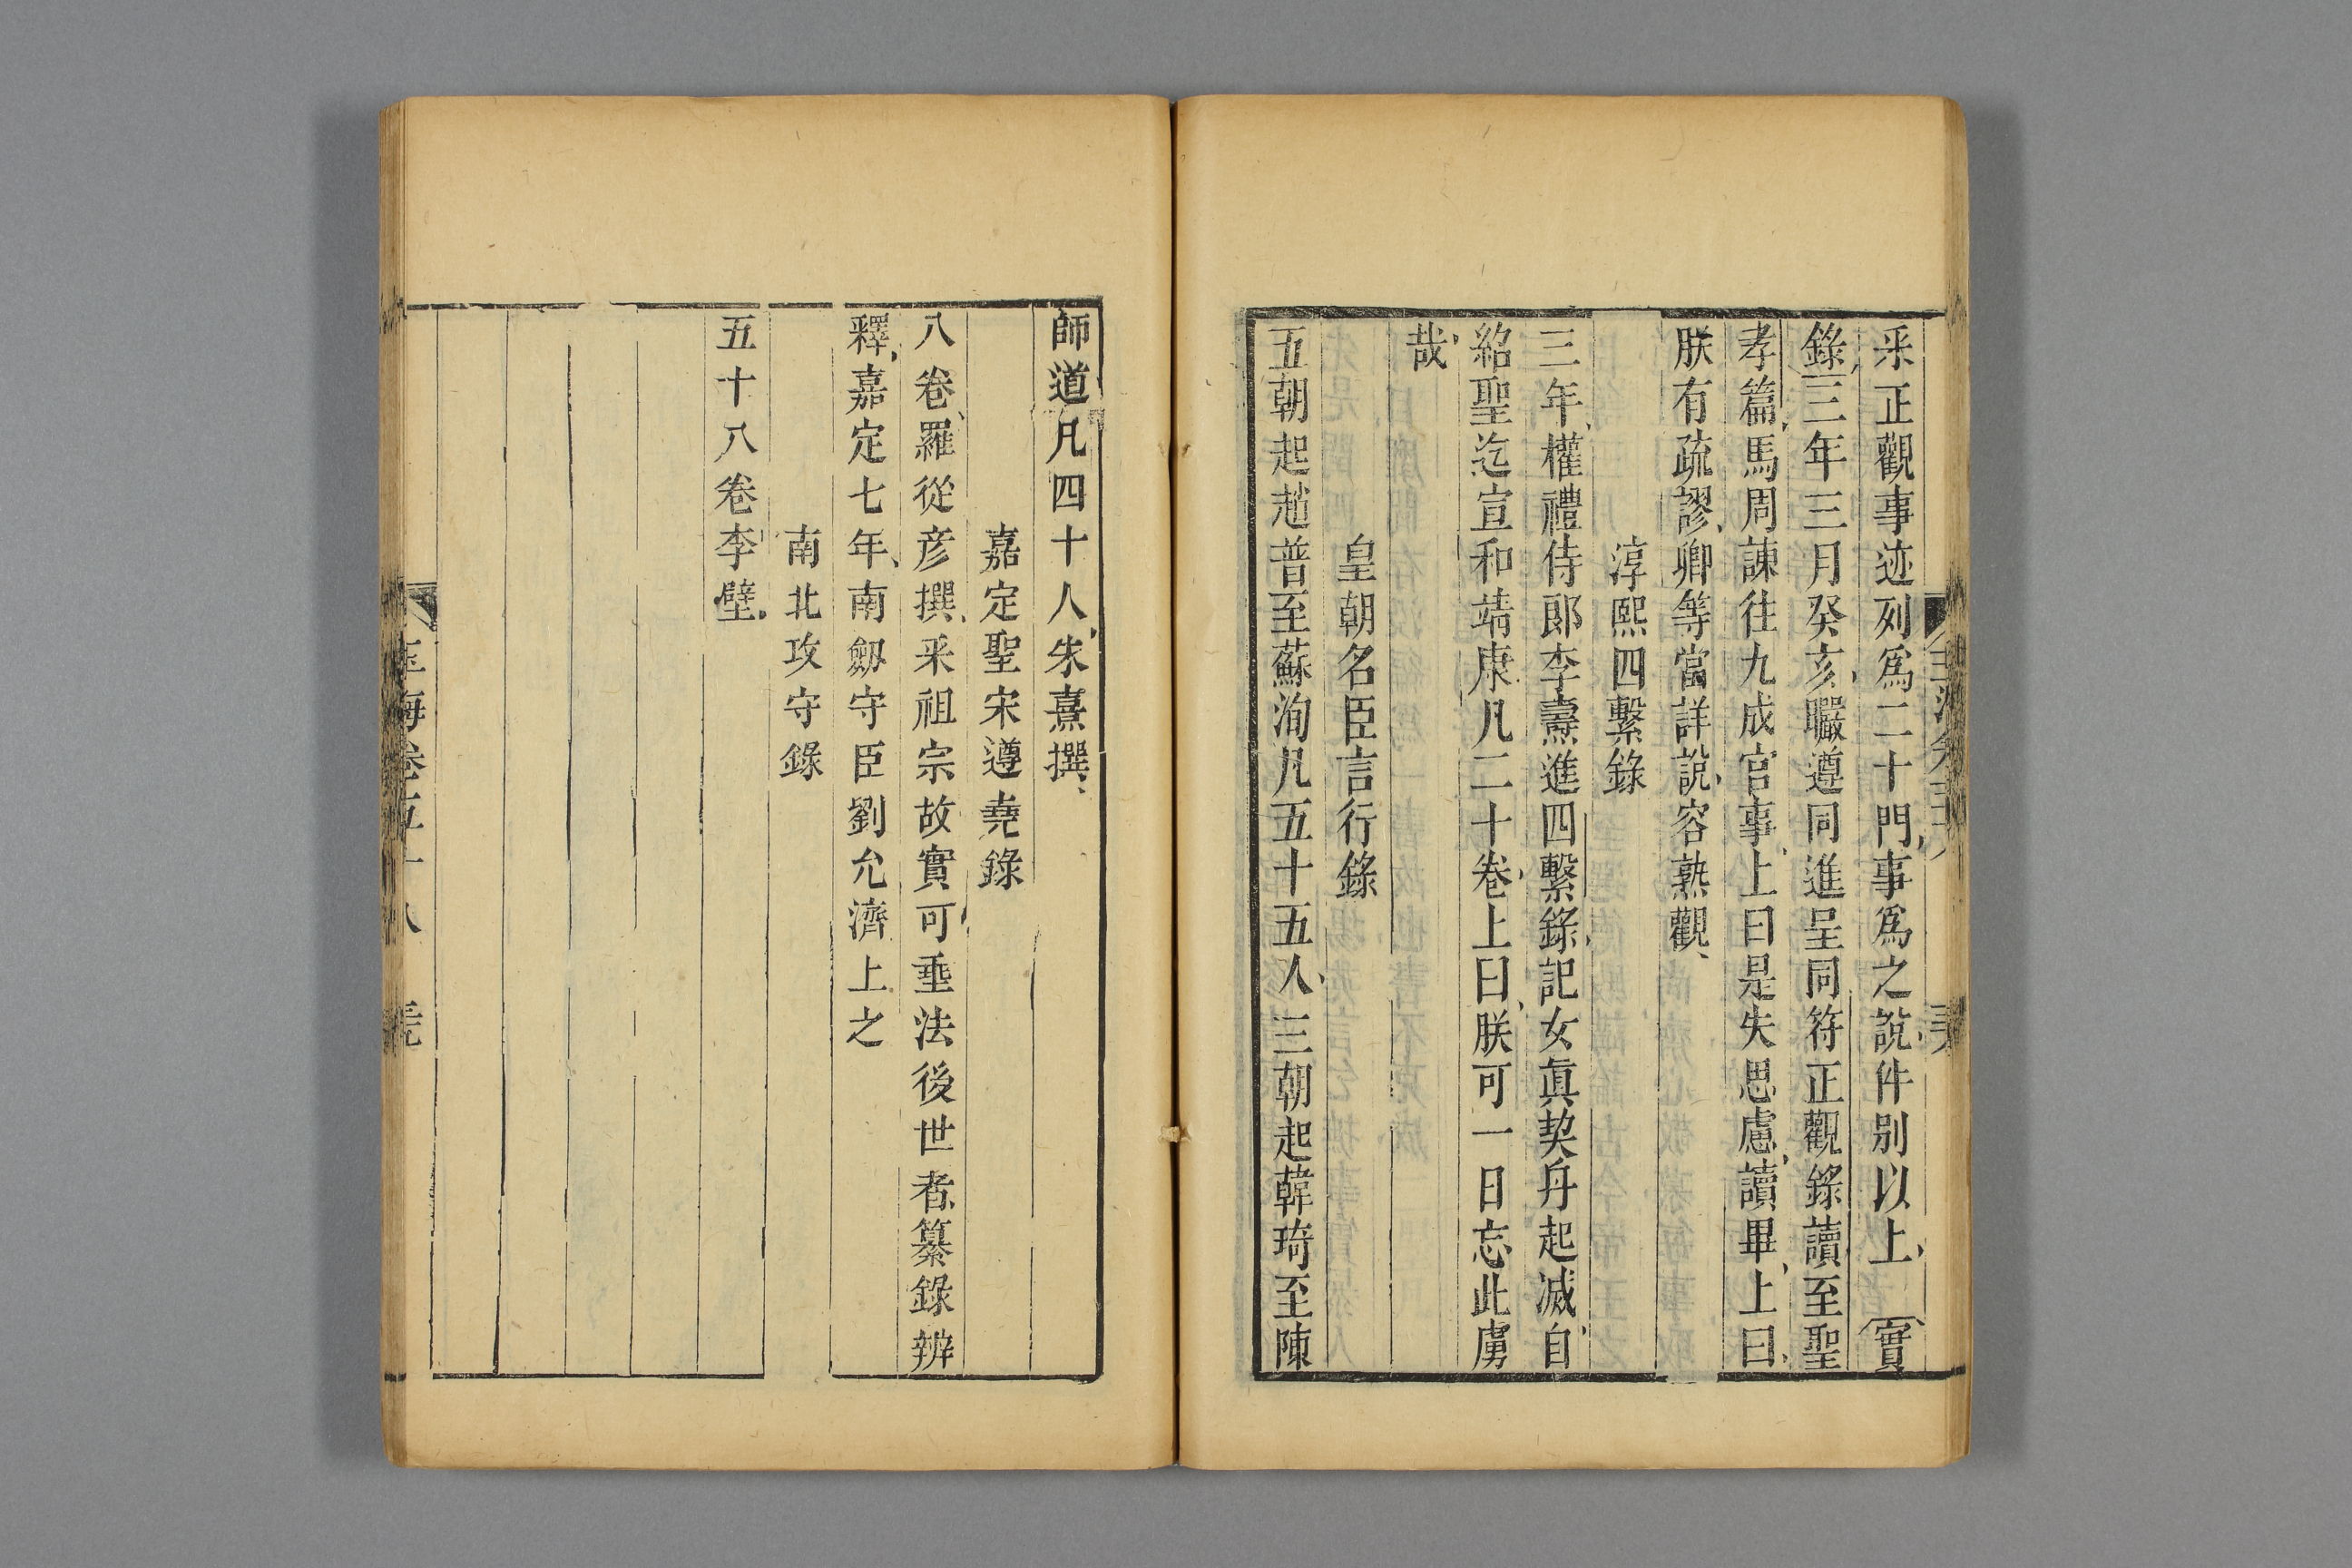 采正觀事迹列爲二十門事爲之說件別以上實
錄三年三月癸亥曮遵同進呈同符正觀錄讀至聖
孝篇馬周諫往九成宮事上曰是失思慮讀畢上曰
朕有疏謬卿等當詳說容熟觀
淳熙四繫錄
三年權禮侍郎李燾進四繫錄記女眞契丹起滅自
紹聖迄宣和靖康凡二十卷上曰朕可一日忘此虜
哉
皇朝名臣言行錄
五朝起趙普至蘇洵凡五十五人三朝起韓琦至陳
師道凡四十人朱熹撰
嘉定聖宋遵堯錄
八卷羅從彦撰采祖宗故實可垂法後世者纂錄辨
釋嘉定七年南劔守臣劉允濟上之
南北攻守錄
五十八卷李壁
玉海卷五十八